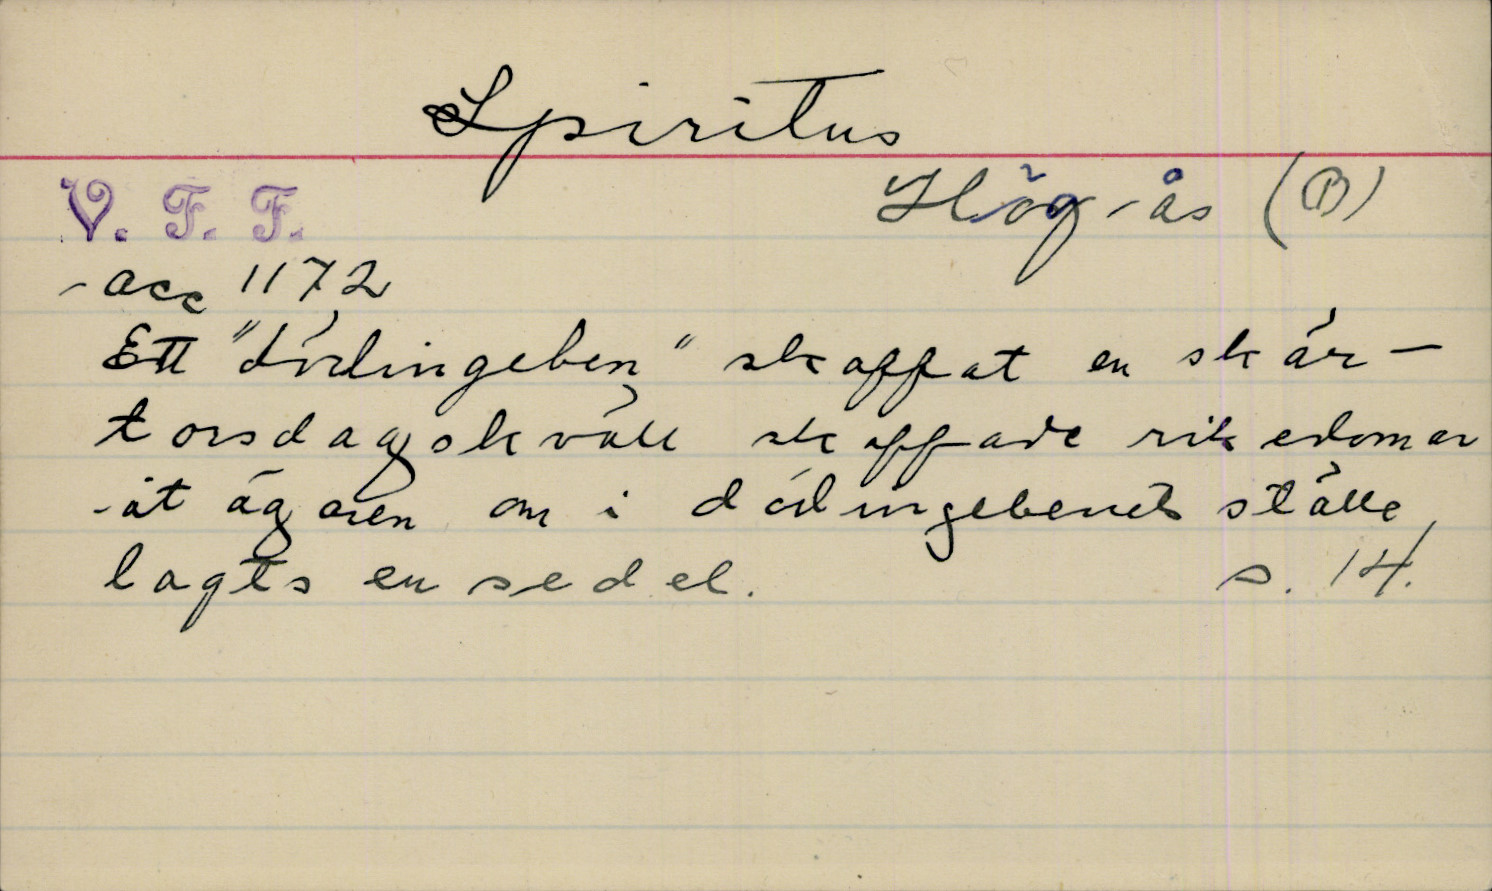 Spiritus
V. F. F.
Högås (B)
acc 1172
Ett "dödingeben" skaffat en skär-
torsdagskväll skaffade rikedomar
åt ägaren om i dödingebenets ställe
lagts en sedel. s. 14.